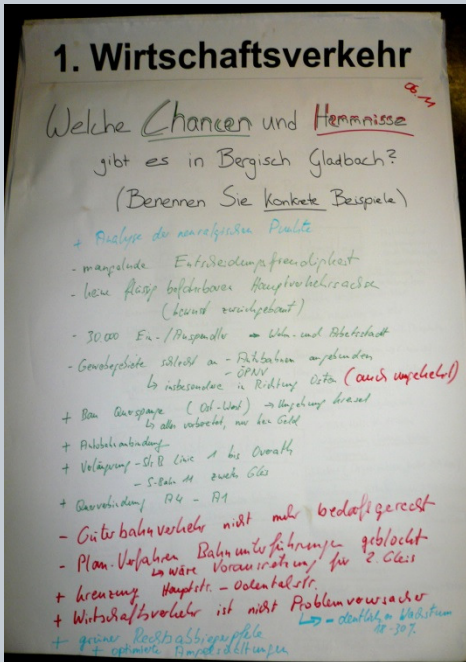 1. Wirtschaftsverkehr
Welche Chancen und Hemmnisse
gibt es in Bergisch Gladbach?
(Benennen Sie konkrete Beispiele)
+ Analyse der neuralgischen Punkte
- mangelnde Entscheidungsfreudigkeit
- keine flüssig befahrbaren Hauptverkehrsachsen
(bewusst zurückgebaut)
- 30.000 Ein-/Auspendler → Wohn- und Arbeitsstadt
- Gewerbegebiete schlecht an - Autobahnen angebunden
- ÖPNV
↳ insbesondere in Richtung Osten (auch umgekehrt)
+ Bau Querspange (Ost-West) → Umgehung Kreisel
↳ alles vorbereitet, nur kein Geld
+ Autobahnanbindung
+ Verlängerung - Str.B Linie 1 bis Overath
- S-Bahn 11 zweites Gleis
+ Querverbindung A4 - A1
- Güterbahnverkehr nicht mehr bedarfsgerecht
- Plan-Verfahren Bahnunterführungen geblockt
↳ wäre Voraussetzung für 2. Gleis
+ Kreuzung Hauptstr. - Odentalstr.
+ Wirtschaftsverkehr ist nicht Problemverursacher
↳ - deutliches Wachstum
18-30%
+ grüner Rechtsabbiegerpfeile
+ optimierte Ampelschaltungen